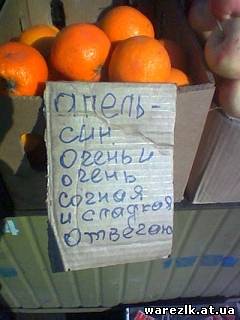 опель-
син
очень и
очень
сочная
и сладкая
отвечаю
warezlk.at.ua